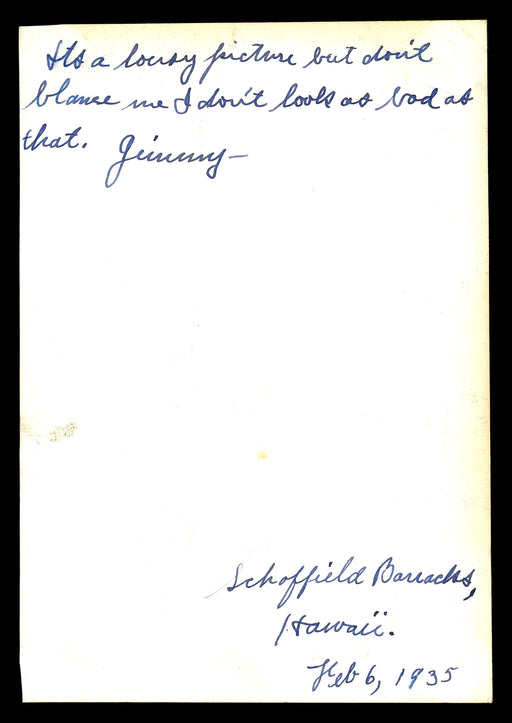 Its a lousy picture but don't
blame me I don't look as bad as
that. Jimmy—
Schoffield Barracks,
Hawaii.
Feb 6, 1935